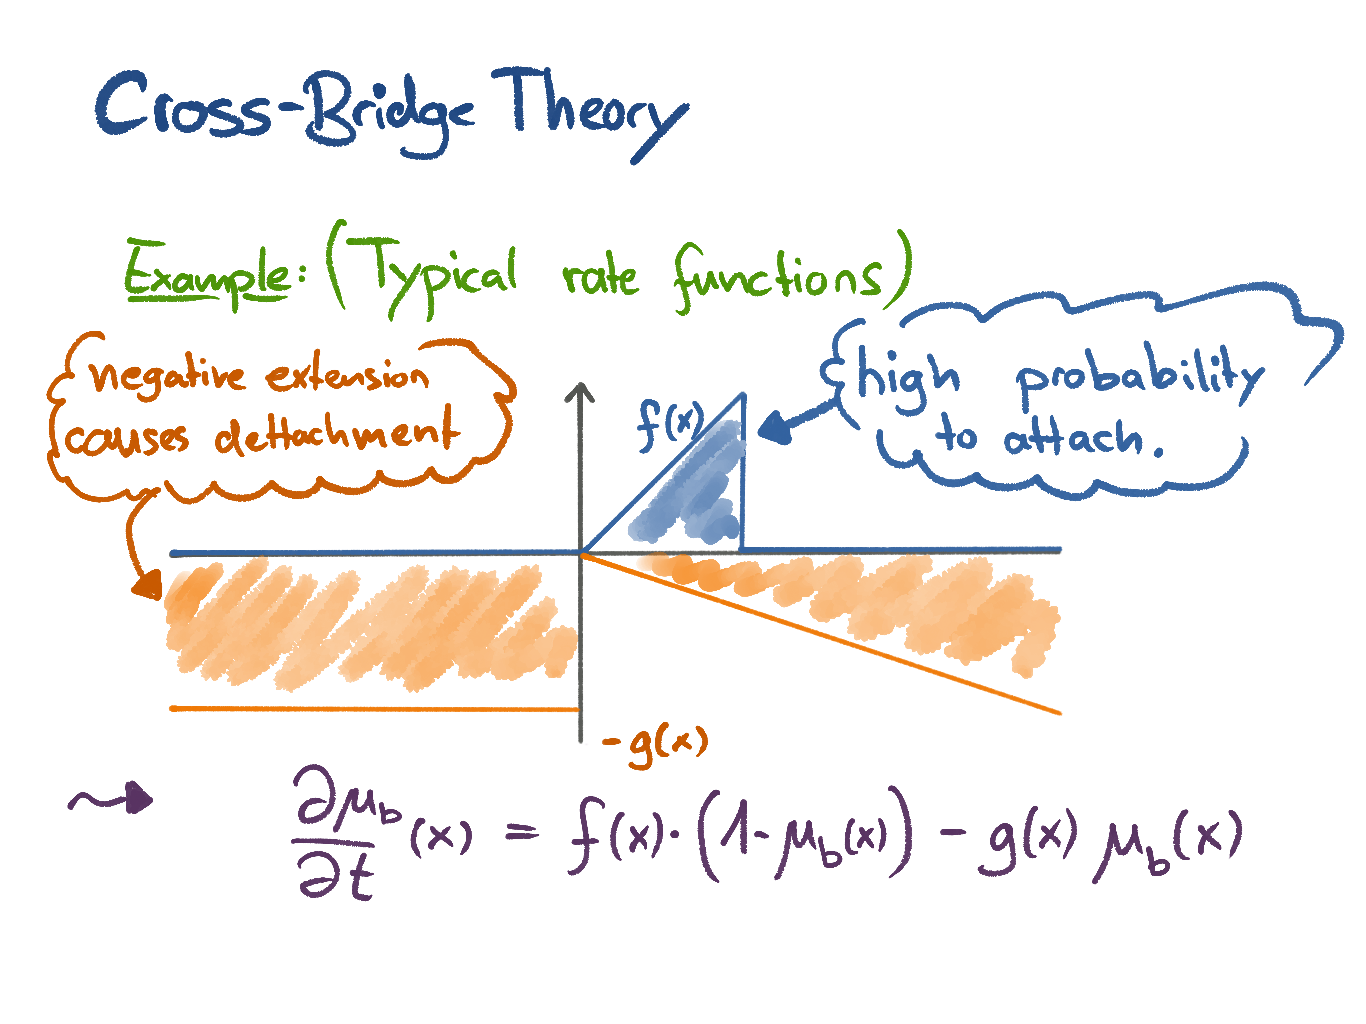 Cross-Bridge Theory
Example: (Typical rate functions)
negative extension
causes dettachment
high probability
to attach.
f(x)
-g(x)
∂μ_b/∂t (x) = f(x)·(1-μ_b(x)) - g(x) μ_b(x)